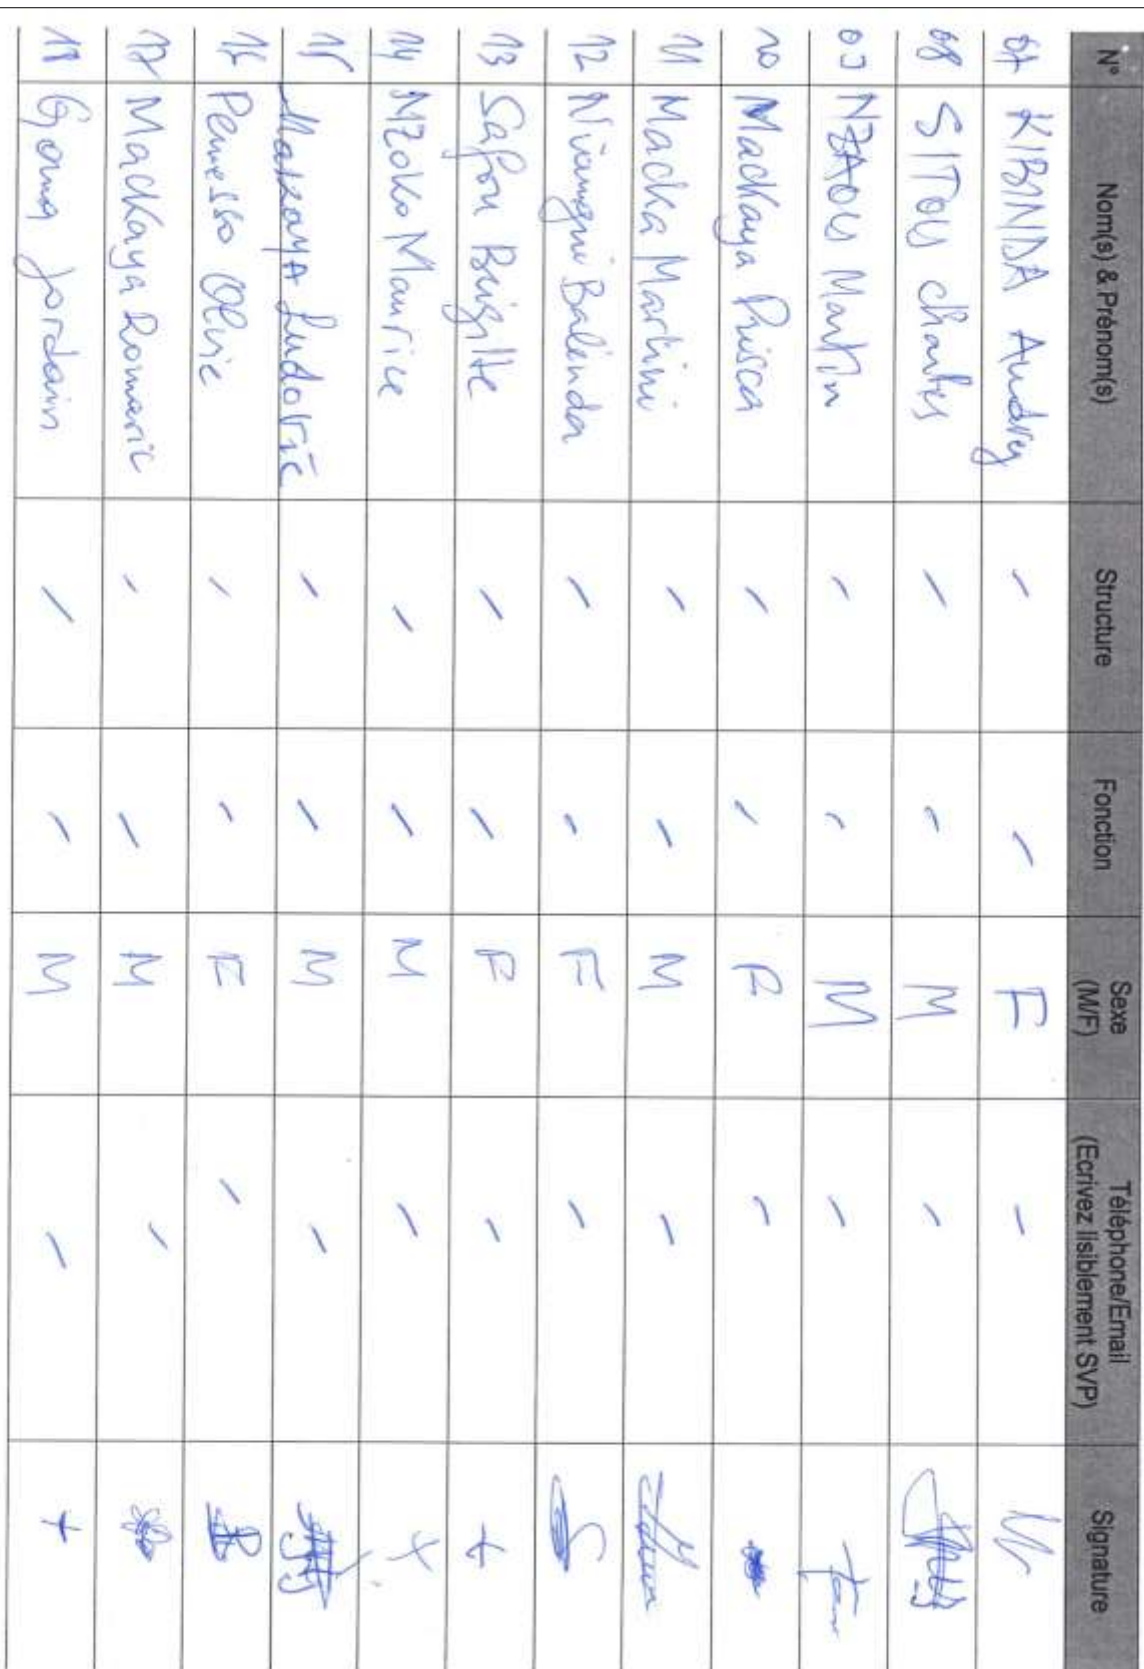 N° Nom(s) & Prénom(s) Structure Fonction Sexe (M/F) Téléphone/Email (Ecrivez lisiblement SVP) Signature
07 KIBINDA Audrey - - F -
08 SITOU Charles - - M -
09 NZAOU Martin - - M -
10 Mackaya Prisca - - F -
11 Macka Martini - - M -
12 Niangui Balinda - - F -
13 Safou Brigitte - - F - +
14 MZOKO Maurice - - M - +
15 Makaya Ludovic - - M -
16 - - F -
17 Mackaya Romaric - - M -
18 Goma Jordain - - M - +